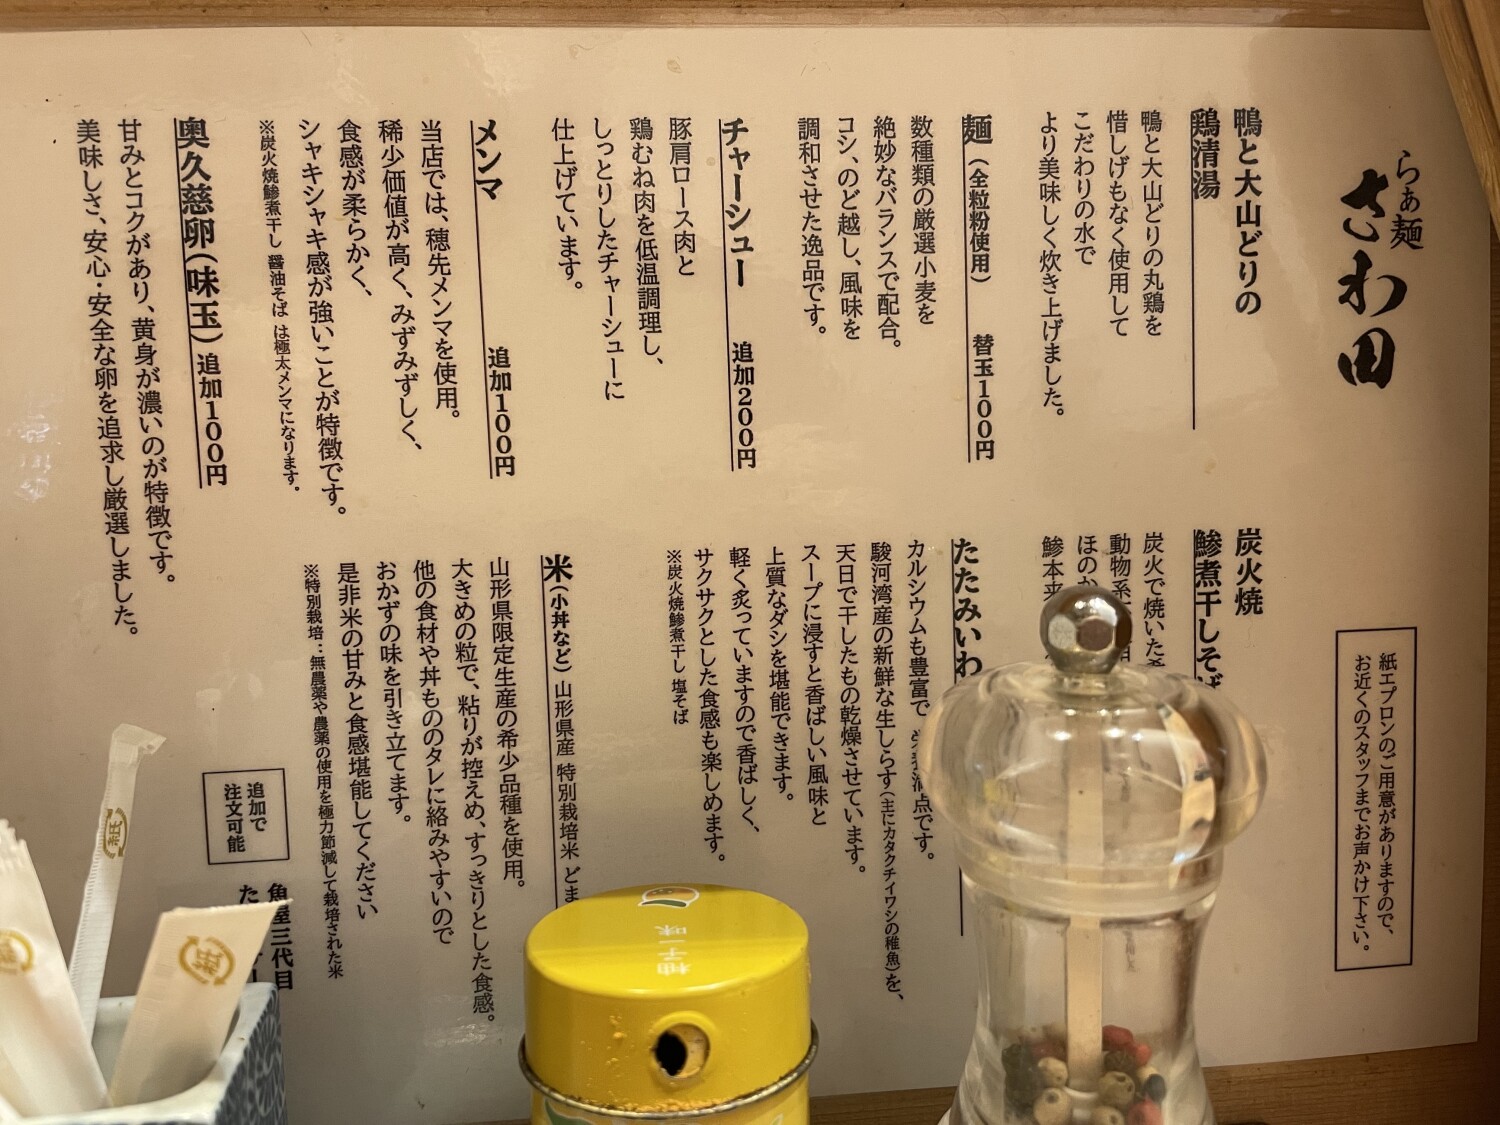 らぁ麺
さわ田
紙エプロンのご用意がありますので、
お近くのスタッフまでお声かけ下さい。
鴨と大山どりの
鶏清湯
鴨と大山どりの丸鶏を
惜しげもなく使用して
こだわりの水で
より美味しく炊き上げました。
麺（全粒粉使用） 替玉100円
数種類の厳選小麦を
絶妙なバランスで配合。
コシ、のど越し、風味を
調和させた逸品です。
チャーシュー 追加200円
豚肩ロース肉と
鶏むね肉を低温調理し、
しっとりしたチャーシューに
仕上げています。
メンマ 追加100円
当店では、穂先メンマを使用。
稀少価値が高く、みずみずしく、
食感が柔らかく、
シャキシャキ感が強いことが特徴です。
※炭火焼鯵煮干し 醤油そば は極太メンマになります。
奥久慈卵（味玉）追加100円
甘みとコクがあり、黄身が濃いのが特徴です。
美味しさ、安心・安全な卵を追求し厳選しました。
炭火焼
鯵煮干しそば
炭火で焼いた
動物系
ほのか
鯵本来
たたみいわ
カルシウムも豊富で 点です。
駿河湾産の新鮮な生しらす（主にカタクチイワシの稚魚）を、
天日で干したもの乾燥させています。
スープに浸すと香ばしい風味と
上質なダシを堪能できます。
軽く炙っていますので香ばしく、
サクサクとした食感も楽しめます。
※炭火焼鯵煮干し 塩そば
米（小丼など）山形県産 特別栽培米 どま
山形県限定生産の希少品種を使用。
大きめの粒で、粘りが控えめ、すっきりとした食感。
他の食材や丼もののタレに絡みやすいので
おかずの味を引き立てます。
是非米の甘みと食感堪能してください
※特別栽培：無農薬や農薬の使用を極力節減して栽培された米
追加で
注文可能
魚屋三代目
た
柚子一味
紙
紙
紙